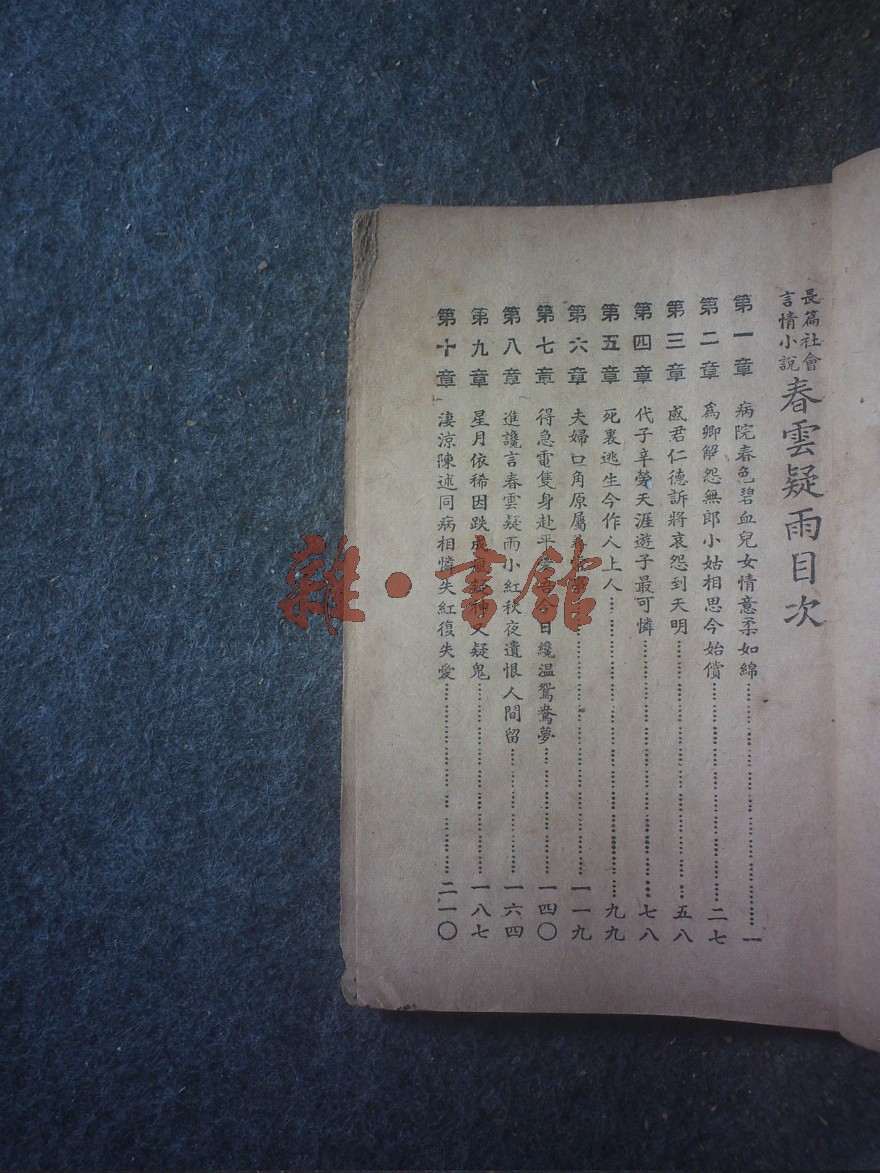 長篇社會
言情小說
春雲疑雨目次
第一章 病院春色碧血兒女情意柔如綿……一
第二章 為卿解怨無郎小姑相思今始償……二七
第三章 感君仁德訴將哀怨到天明……五八
第四章 代子辛勞天涯遊子最可憐……七八
第五章 死裏逃生今作人上人……九九
第六章 夫婦口角原屬……一一九
第七章 得急電隻身赴平……日纔溫鴛鴦夢……一四〇
第八章 進讒言春雲疑雨小紅秋夜遺恨人間留……一六四
第九章 星月依稀因跌成……又疑鬼……一八七
第十章 淒涼陳述同病相憐失紅復失愛……二一〇
雜·書館